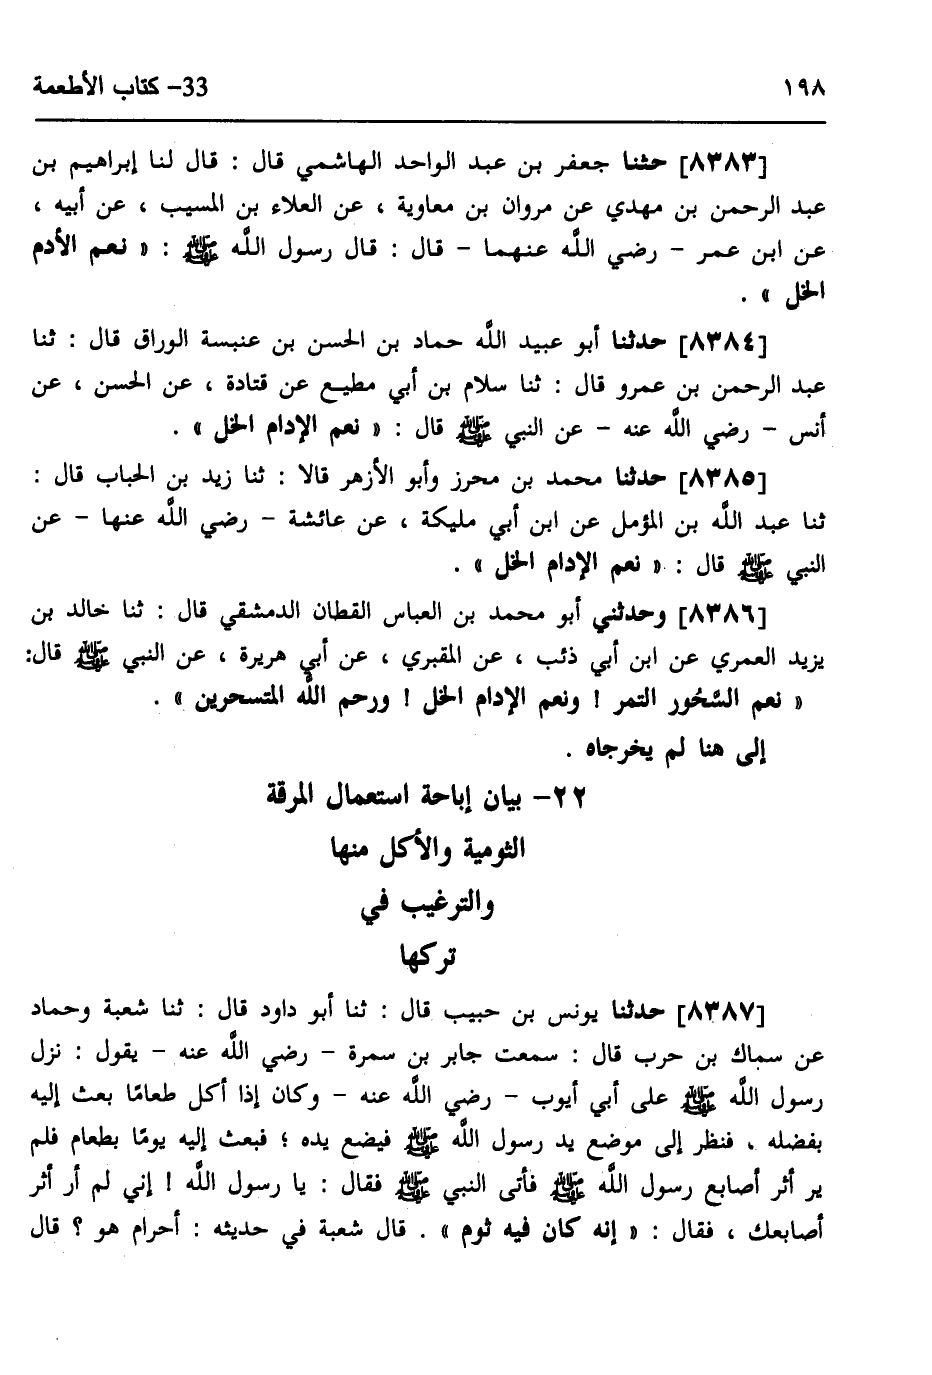 ١٩٨
33- كتاب الأطعمة
[٨٣٨٣] حثنا جعفر بن عبد الواحد الهاشمي قال : قال لنا إبراهيم بن
عبد الرحمن بن مهدي عن مروان بن معاوية ، عن العلاء بن المسيب ، عن أبيه ،
عن ابن عمر - رضي اللَّه عنهما - قال : قال رسول اللَّه ﷺ : « نعم الأدم
الخل » .
[٨٣٨٤] حدثنا أبو عبيد اللَّه حماد بن الحسن بن عنبسة الوراق قال : ثنا
عبد الرحمن بن عمرو قال : ثنا سلام بن أبي مطيع عن قتادة ، عن الحسن ، عن
أنس - رضي اللَّه عنه - عن النبي ﷺ قال : « نعم الإدام الخل » .
[٨٣٨٥] حدثنا محمد بن محرز وأبو الأزهر قالا : ثنا زيد بن الحباب قال :
ثنا عبد اللَّه بن المؤمل عن ابن أبي مليكة ، عن عائشة - رضي اللَّه عنها - عن
النبي ﷺ قال : « نعم الإدام الخل » .
[٨٣٨٦] وحدثني أبو محمد بن العباس القطان الدمشقي قال : ثنا خالد بن
يزيد العمري عن ابن أبي ذئب ، عن المقبري ، عن أبي هريرة ، عن النبي ﷺ قال:
« نعم السَّحُور التمر ! ونعم الإدام الخل ! ورحم اللَّه المتسحرين » .
إلى هنا لم يخرجاه .
٢٢- بيان إباحة استعمال المرقة
الثومية والأكل منها
والترغيب في
تركها
[٨٣٨٧] حدثنا يونس بن حبيب قال : ثنا أبو داود قال : ثنا شعبة وحماد
عن سماك بن حرب قال : سمعت جابر بن سمرة - رضي اللَّه عنه - يقول : نزل
رسول اللَّه ﷺ على أبي أيوب - رضي اللَّه عنه - وكان إذا أكل طعامًا بعث إليه
بفضله ، فنظر إلى موضع يد رسول اللَّه ﷺ فيضع يده ؛ فبعث إليه يومًا بطعام فلم
ير أثر أصابع رسول اللَّه ﷺ فأتى النبي ﷺ فقال : يا رسول اللَّه ! إني لم أر أثر
أصابعك ، فقال : « إنه كان فيه ثوم » . قال شعبة في حديثه : أحرام هو ؟ قال